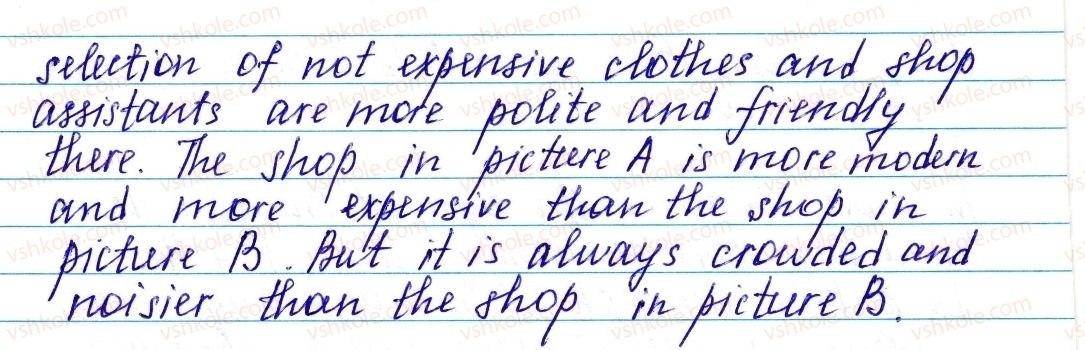 selection of not expensive clothes and shop
assistants are more polite and friendly
there. The shop in picture A is more modern
and more expensive than the shop in
picture B. But it is always crowded and
noisier than the shop in picture B.